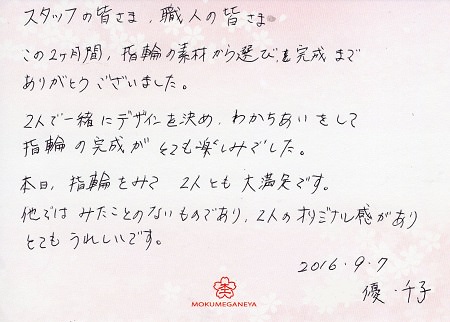 スタッフの皆さま、職人の皆さま
この2ヶ月間、指輪の素材から選び、完成まで
ありがとうございました。
2人で一緒にデザインを決め、わかちあいをして
指輪の完成がとても楽しみでした。
本日、指輪をみて 2人とも 大満足です。
他では みたことのないものであり、2人のオリジナル感があり
とても うれしいです。
2016.9.7
優・千子
MOKUMEGANEYA